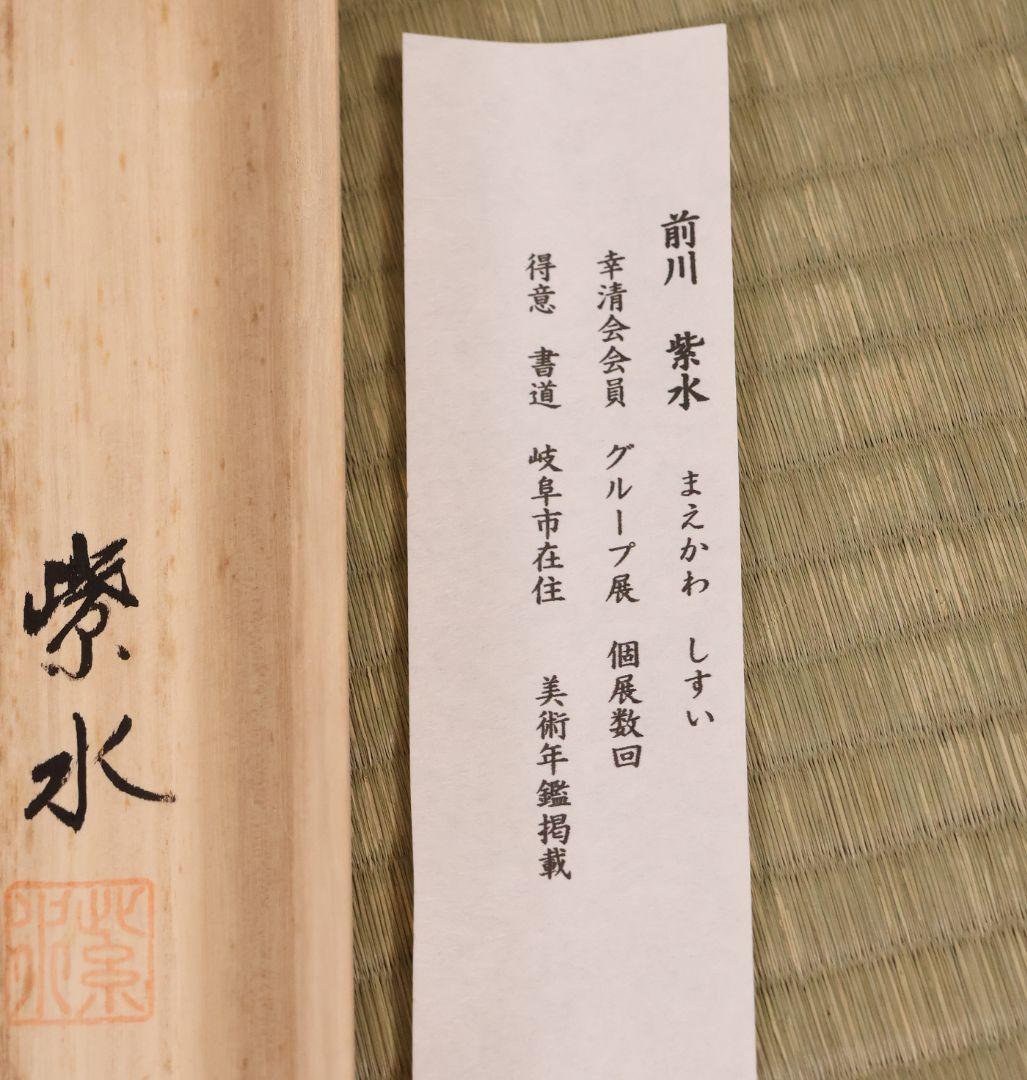 前川 紫水 まえかわ しすい
幸清会会員 グループ展 個展数回
得意 書道 岐阜市在住 美術年鑑掲載
紫水
紫水